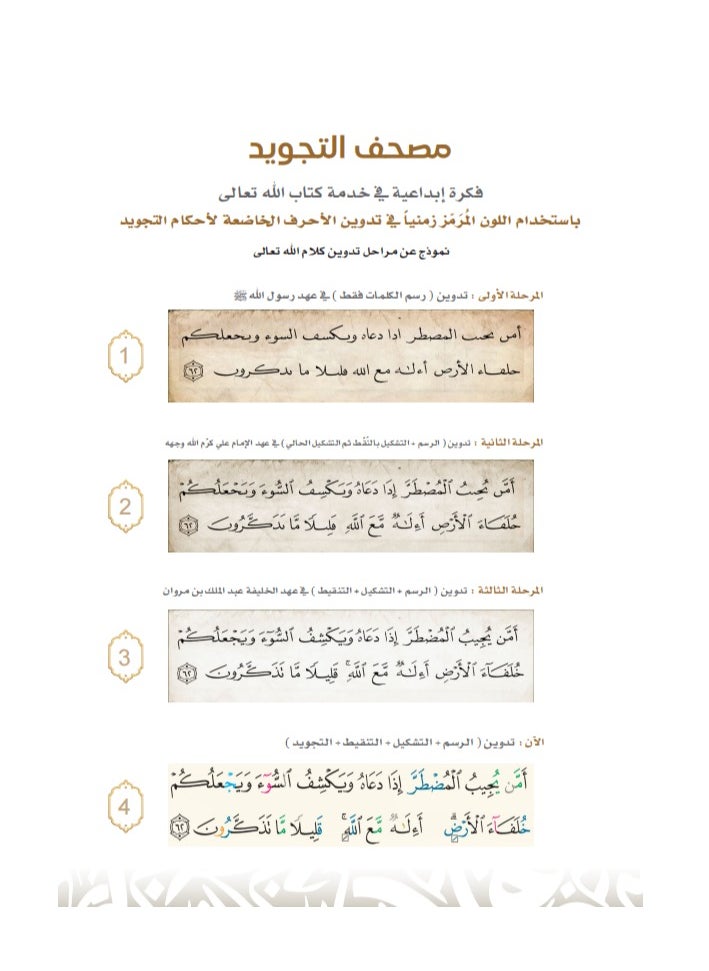 مصحف التجويد
فكرة إبداعية في خدمة كتاب الله تعالى
باستخدام اللون المُرَمّز زمنياً في تدوين الأحرف الخاضعة لأحكام التجويد
نموذج عن مراحل تدوين كلام الله تعالى
المرحلة الأولى : تدوين ( رسم الكلمات فقط ) في عهد رسول الله ﷺ
1
امں ٮحٮٮ المصطر ادا دعاه وٮكسف السوء وٮحعلكم
حلفاء الأرص أءلٮه مع الله ڡلٮلا ما ٮدكروں ٦٢
المرحلة الثانية : تدوين ( الرسم + التشكيل بالنُقَط ثم التشكيل الحالي ) في عهد الإمام علي كرّم الله وجهه
2
أَمَّں ٮُحِٮٮُ ٱلْمُصْطَرَّ إِدَا دَعَاهُ وَٮَكْسِفُ ٱلسُّوٓءَ وَٮَحْعَلُكُمْ
حُلَفَآءَ ٱلْأَرْصِ أَءِلَٰهٌ مَّعَ ٱللَّهِ ڡَلِٮلًا مَّا ٮَدَكَّرُوںَ ٦٢
المرحلة الثالثة : تدوين ( الرسم + التشكيل + التنقيط ) في عهد الخليفة عبد الملك بن مروان
3
أَمَّن يُجِيبُ ٱلْمُضْطَرَّ إِذَا دَعَاهُ وَيَكْشِفُ ٱلسُّوٓءَ وَيَجْعَلُكُمْ
خُلَفَآءَ ٱلْأَرْضِ أَءِلَٰهٌ مَّعَ ٱللَّهِ ۚ قَلِيلًا مَّا تَذَكَّرُونَ ٦٢
الآن : تدوين ( الرسم + التشكيل + التنقيط + التجويد )
4
أَمَّن يُجِيبُ ٱلْمُضْطَرَّ إِذَا دَعَاهُ وَيَكْشِفُ ٱلسُّوٓءَ وَيَجْعَلُكُمْ
خُلَفَآءَ ٱلْأَرْضِ أَءِلَٰهٌ مَّعَ ٱللَّهِ ۚ قَلِيلًا مَّا تَذَكَّرُونَ ٦٢